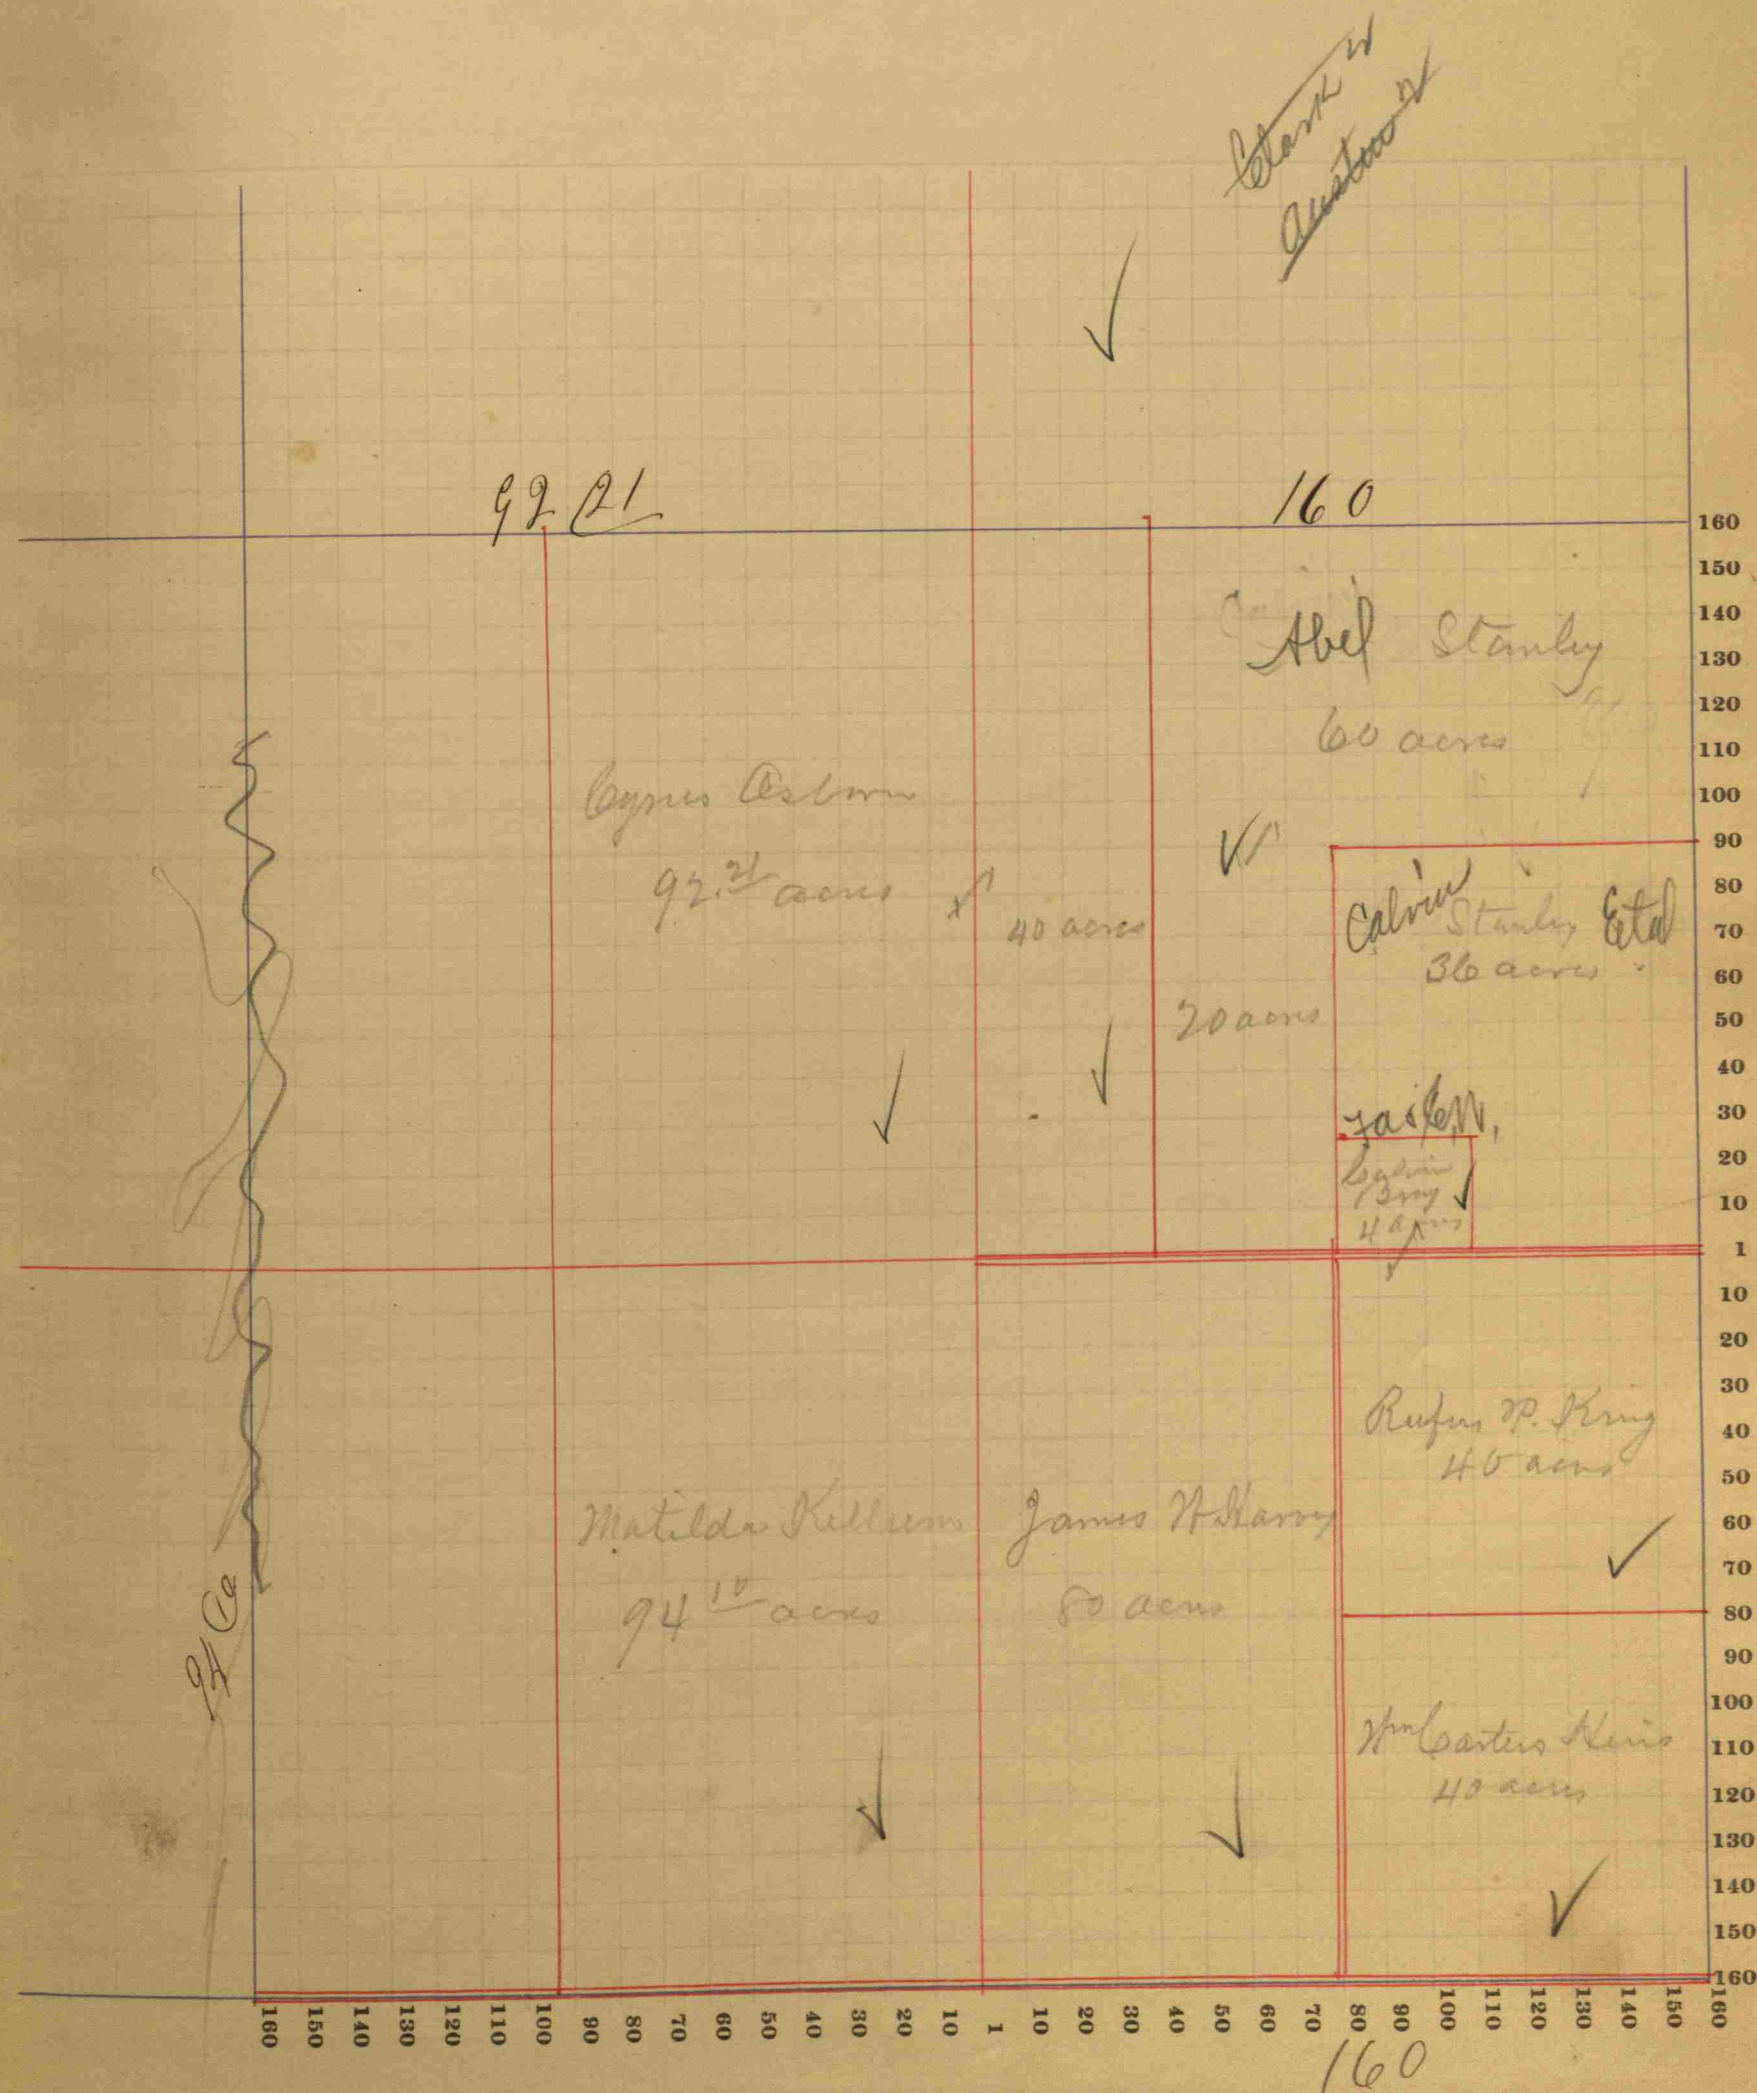 Clark W
Austin W
92 21
160
Abel Stanley
60 acres
Cyrus Osborn
92.21 acres
40 acres
20 acres
Calvin Stanley Etal
36 acres
Calvin
4 acres
Rufus P. King
40 acres
Matilda Kellum
94 10 acres
James W Harvey
80 acres
Wm Carters Heirs
40 acres
94 10
160
150
140
130
120
110
100
90
80
70
60
50
40
30
20
10
1
10
20
30
40
50
60
70
80
90
100
110
120
130
140
150
160
160 150 140 130 120 110 100 90 80 70 60 50 40 30 20 10 1 10 20 30 40 50 60 70 80 90 100 110 120 130 140 150 160
160